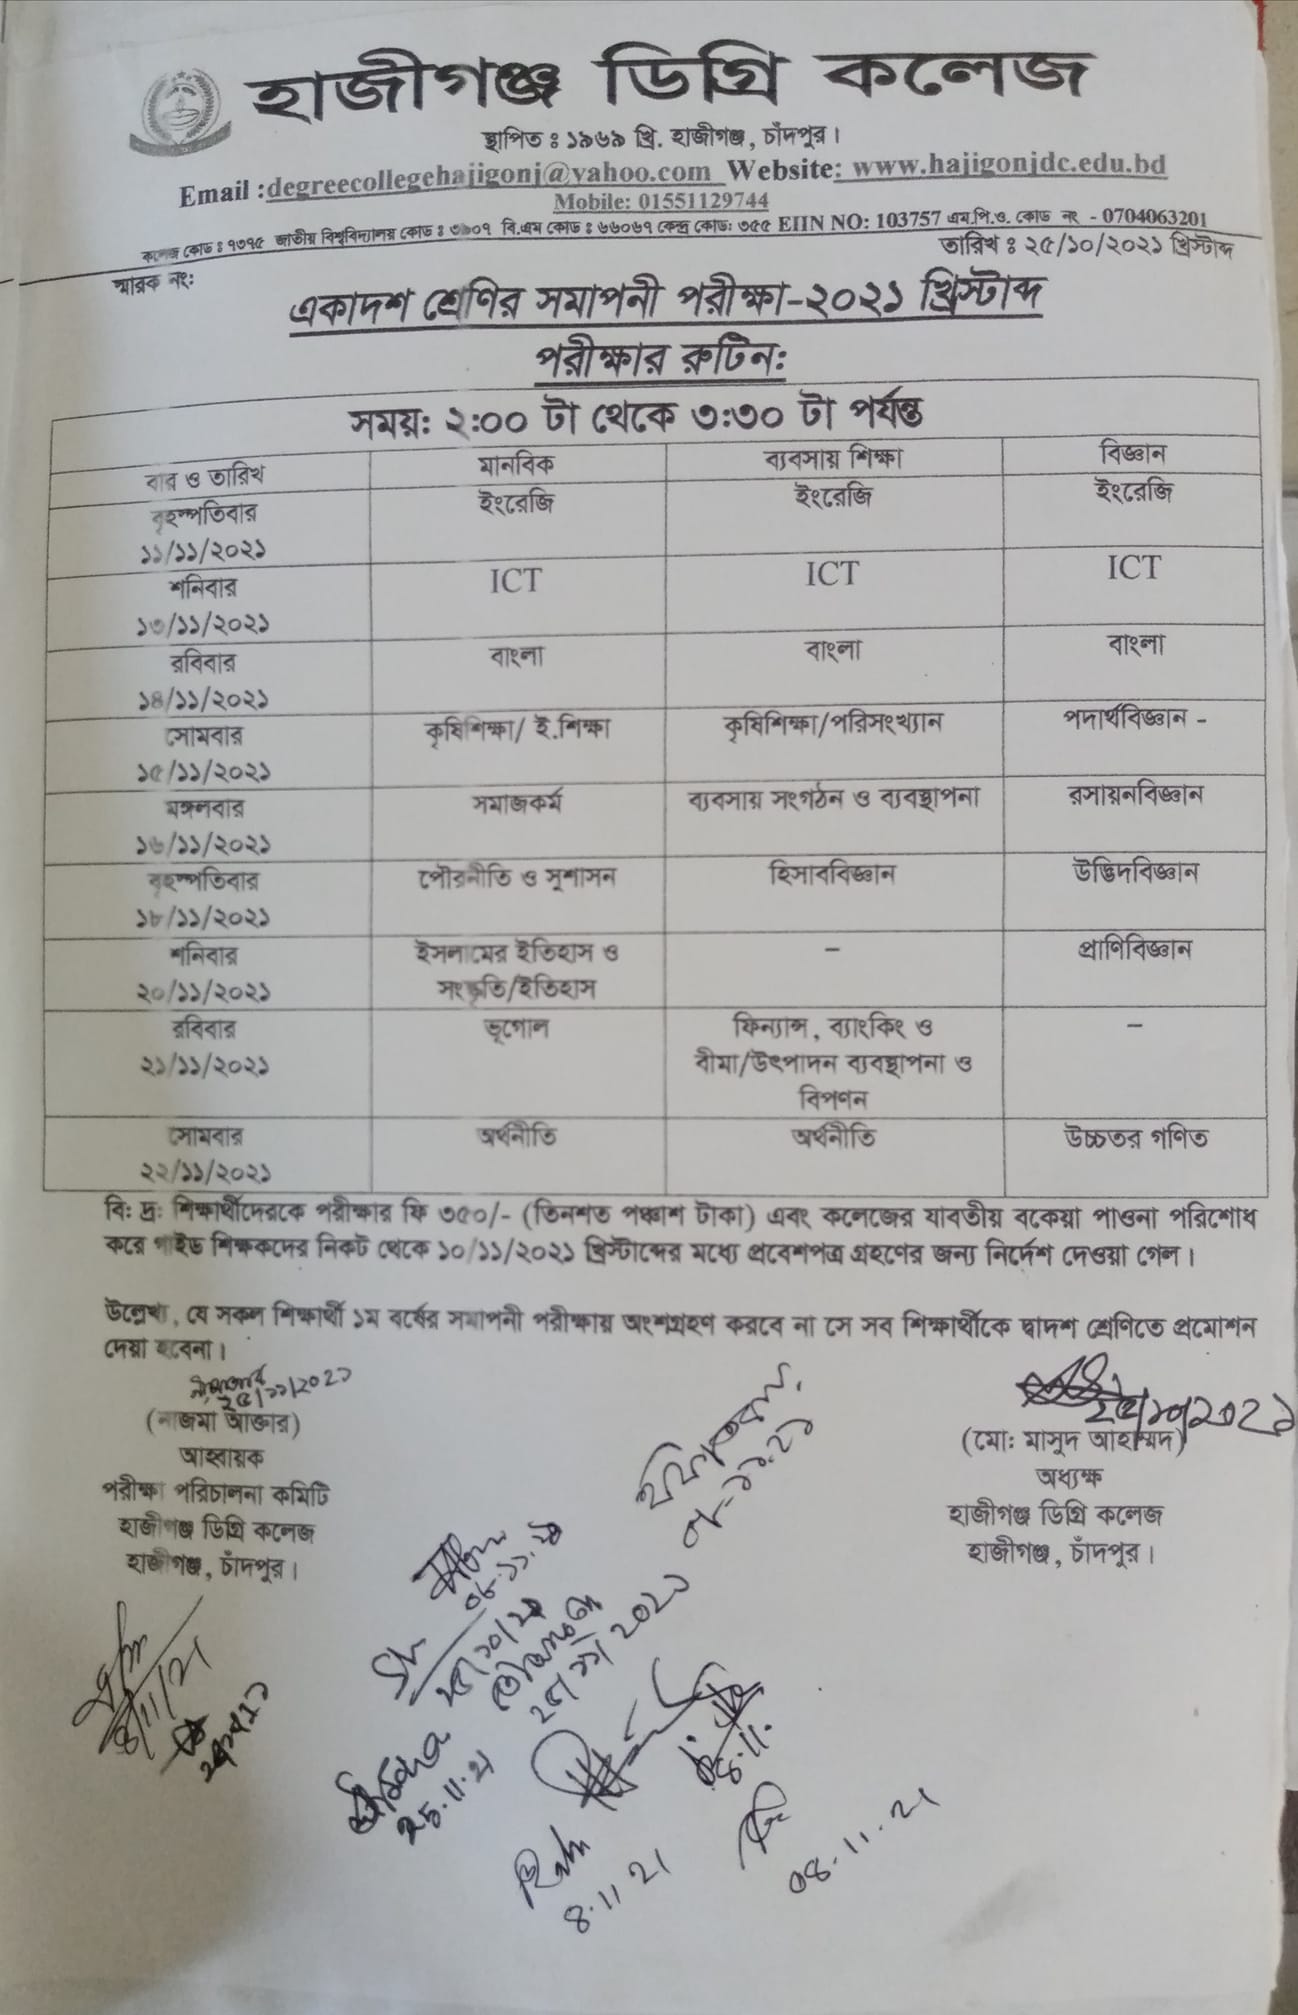 হাজীগঞ্জ ডিগ্রি কলেজ
স্থাপিত ঃ ১৯৬৯ খ্রি. হাজীগঞ্জ, চাঁদপুর।
Email :degreecollegehajigonj@yahoo.com Website: www.hajigonjdc.edu.bd
Mobile: 01551129744
কলেজ কোড ঃ ৭৩৭৫ জাতীয় বিশ্ববিদ্যালয় কোড ঃ ৩৬০৭ বি.এম কোড ঃ ৬৬০৬৭ কেন্দ্র কোড: ৩৫৫ EIIN NO: 103757 এম.পি.ও. কোড নং - 0704063201
তারিখ ঃ ২৫/১০/২০২১ খ্রিস্টাব্দ
স্মারক নং:
একাদশ শ্রেণির সমাপনী পরীক্ষা-২০২১ খ্রিস্টাব্দ
পরীক্ষার রুটিন:
সময়: ২:০০ টা থেকে ৩:৩০ টা পর্যন্ত
বার ও তারিখ মানবিক ব্যবসায় শিক্ষা বিজ্ঞান
বৃহস্পতিবার ইংরেজি ইংরেজি ইংরেজি
১১/১১/২০২১
শনিবার ICT ICT ICT
১৩/১১/২০২১
রবিবার বাংলা বাংলা বাংলা
১৪/১১/২০২১
সোমবার কৃষিশিক্ষা/ ই.শিক্ষা কৃষিশিক্ষা/পরিসংখ্যান পদার্থবিজ্ঞান -
১৫/১১/২০২১
মঙ্গলবার সমাজকর্ম ব্যবসায় সংগঠন ও ব্যবস্থাপনা রসায়নবিজ্ঞান
১৬/১১/২০২১
বৃহস্পতিবার পৌরনীতি ও সুশাসন হিসাববিজ্ঞান উদ্ভিদবিজ্ঞান
১৮/১১/২০২১
শনিবার ইসলামের ইতিহাস ও - প্রাণিবিজ্ঞান
২০/১১/২০২১ সংস্কৃতি/ইতিহাস
রবিবার ভূগোল ফিন্যান্স, ব্যাংকিং ও -
২১/১১/২০২১ বীমা/উৎপাদন ব্যবস্থাপনা ও
বিপণন
সোমবার অর্থনীতি অর্থনীতি উচ্চতর গণিত
২২/১১/২০২১
বি: দ্র: শিক্ষার্থীদেরকে পরীক্ষার ফি ৩৫০/- (তিনশত পঞ্চাশ টাকা) এবং কলেজের যাবতীয় বকেয়া পাওনা পরিশোধ
করে গাইড শিক্ষকদের নিকট থেকে ১০/১১/২০২১ খ্রিস্টাব্দের মধ্যে প্রবেশপত্র গ্রহণের জন্য নির্দেশ দেওয়া গেল।
উল্লেখ্য, যে সকল শিক্ষার্থী ১ম বর্ষের সমাপনী পরীক্ষায় অংশগ্রহণ করবে না সে সব শিক্ষার্থীকে দ্বাদশ শ্রেণিতে প্রমোশন
দেয়া হবেনা।
২৫/১০/২০২১
(নাজমা আক্তার)
আহ্বায়ক
পরীক্ষা পরিচালনা কমিটি
হাজীগঞ্জ ডিগ্রি কলেজ
হাজীগঞ্জ, চাঁদপুর।
(মো: মাসুদ আহাম্মদ)
অধ্যক্ষ
হাজীগঞ্জ ডিগ্রি কলেজ
হাজীগঞ্জ, চাঁদপুর।
8/11/21
25.11.21
8.11 21
08.11.21